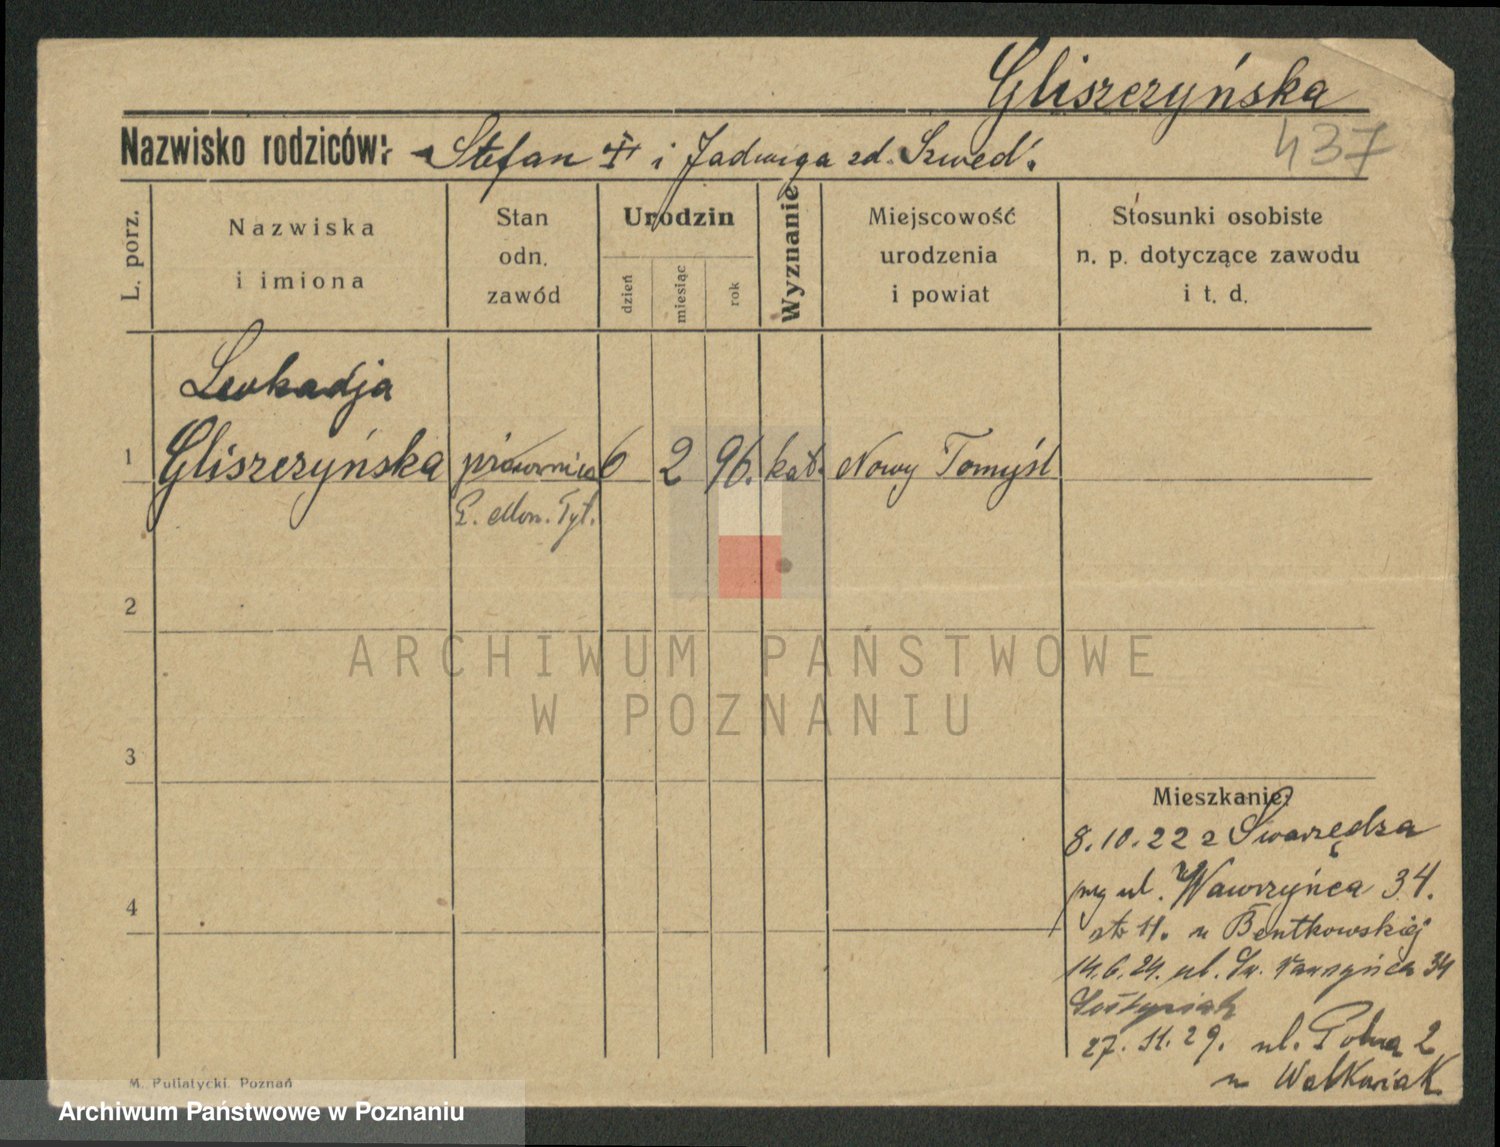 Gliszczyńska
437
Nazwisko rodziców: Stefan i Jadwiga zd. Szwed.
L. porz.
Nazwiska
i imiona
Stan
odn.
zawód
Urodzin
dzień
miesiąc
rok
Wyznanie
Miejscowość
urodzenia
i powiat
Stosunki osobiste
n. p. dotyczące zawodu
i t. d.
Leokadja
1 Gliszczyńska 6 2 96. kat. Nowy Tomyśl
Mon. Tyt.
2
3
4
Mieszkanie:
8.10.22 z Swarzędza
przy ul. Wawrzyńca 34.
u Bentkowskiej
14.6.24. ul. Św. Wawrzyńca 34
27.11.29. ul. Polna 2
u Walkowiak
M. Putiatycki. Poznań
ARCHIWUM PAŃSTWOWE
W POZNANIU
Archiwum Państwowe w Poznaniu